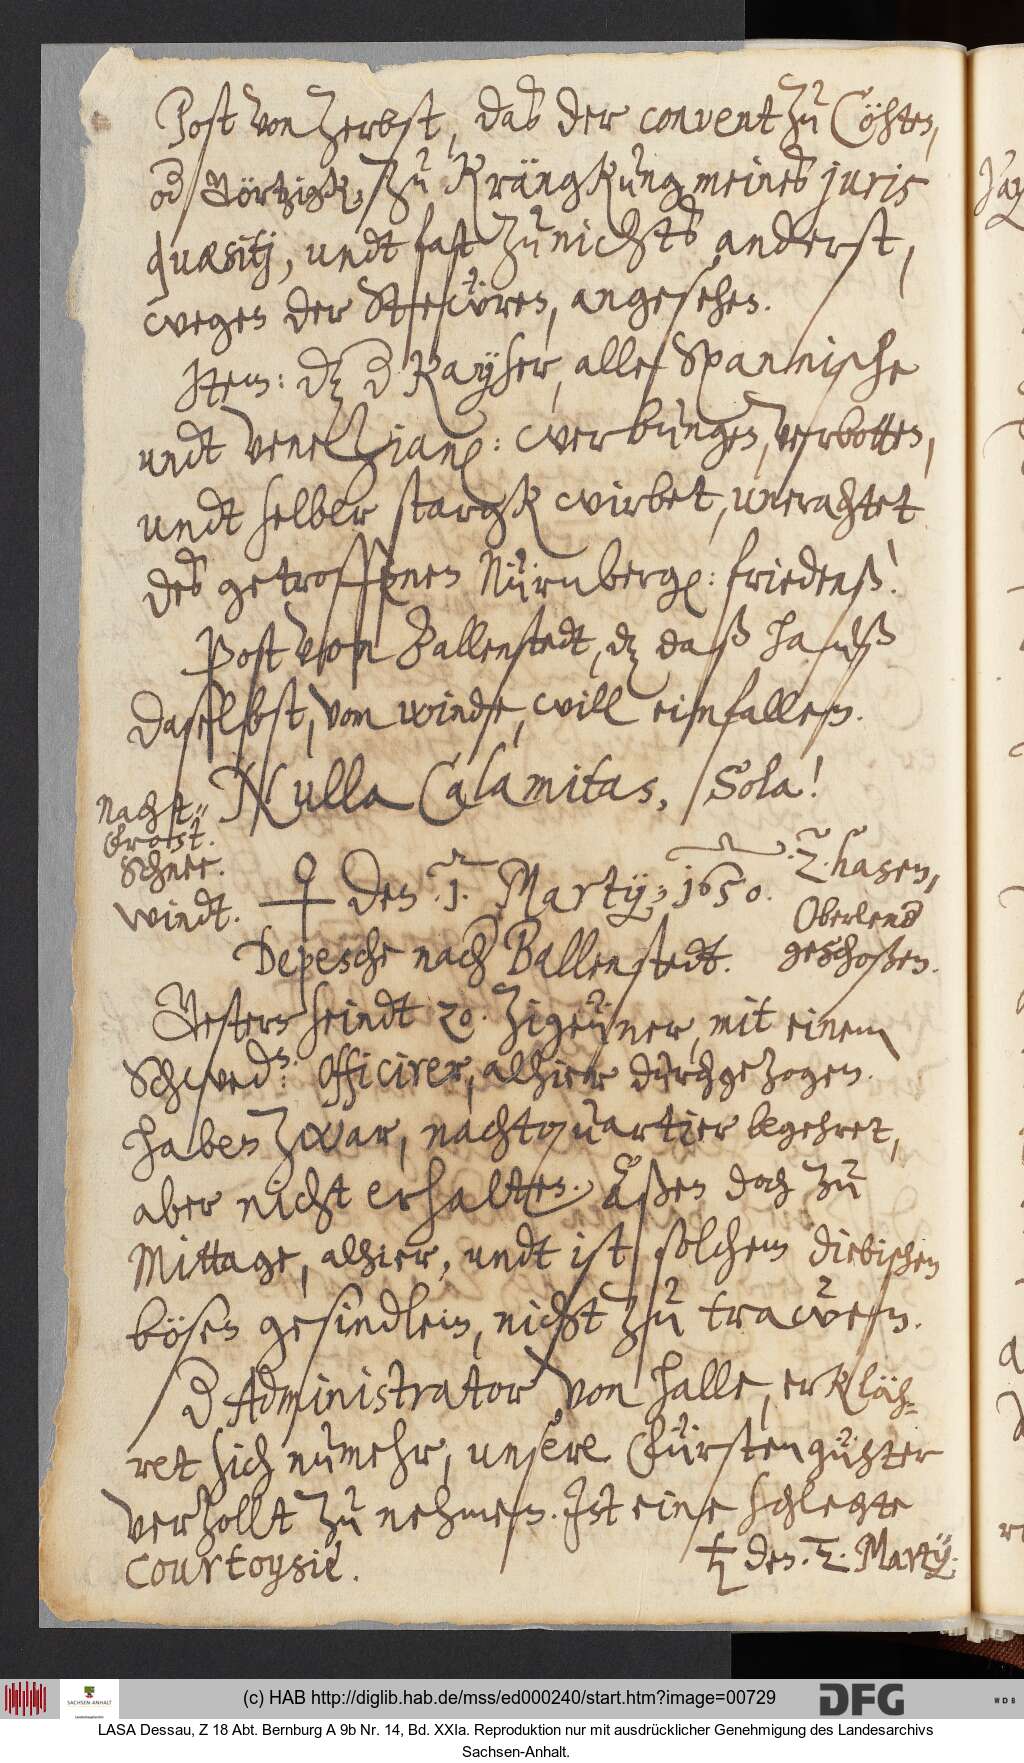 Post von Zerbst, das der convent zu Cöhten,
od Wörtzigk, zu Krängkung meines juris
quæsitj, undt fast zu nichts anderst,
wegen der Stewren, angesehen.
Item: dz d Kayser, alle Spannische
undt Venezian: werbungen, verbotten,
undt selber stargk wirbet, unerachtet
des getroffenen Nürnberg: friedenß!
Post von Ballenstedt, dz daß hauß
daselbst, vom winde, will einfallen.
Nulla Calamitas, Sola!
Nacht-
Frost.
Schnee.
windt.
♀ den .1. Martij; 1650.
.2. hasen,
Oberlend
geschoßen.
Depesche nach Ballenstedt.
Gestern seindt 20. Zigeüner, mit einem
Schwedn: Officirer, alhier durchgezogen.
haben zwar, nachtquartier begehret,
aber nicht erhaltten. Aßen doch zu
Mittage, alhier, undt ist solchem diebischen
bösen gesindlein, nicht zu trawen.
d Administrator von Halle, erkläh-
ret sich numehr, unsere Fürstengühter
verzollt zu nehmen. Ist eine schlegte
Courtoysie.
♄ den .2. Martij.
(c) HAB http://diglib.hab.de/mss/ed000240/start.htm?image=00729
SACHSEN-ANHALT
DFG
WDB
LASA Dessau, Z 18 Abt. Bernburg A 9b Nr. 14, Bd. XXIa. Reproduktion nur mit ausdrücklicher Genehmigung des Landesarchivs
Sachsen-Anhalt.